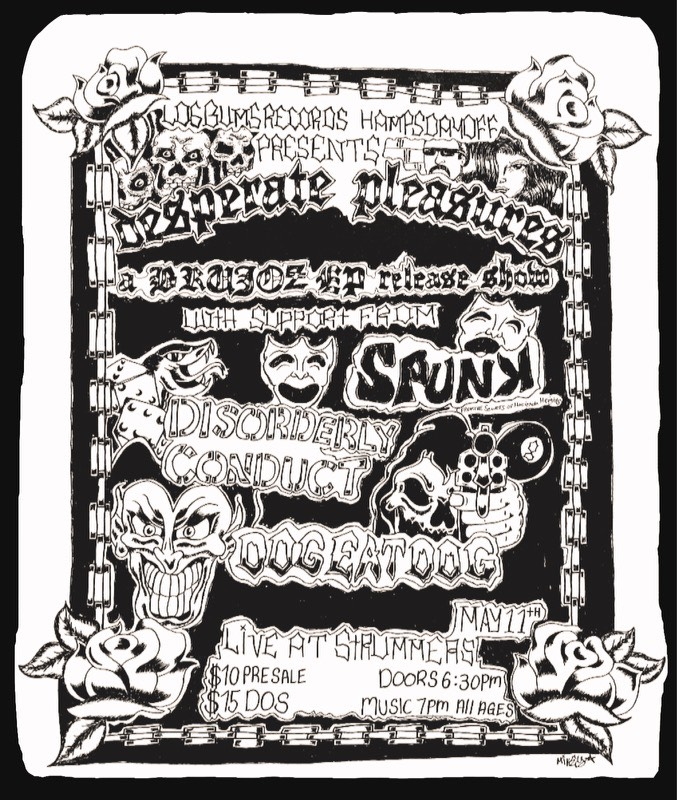 LOGBUMSRECORDS HAMPSDAYOFF
PRESENTS
desperate pleasures
a BRUJOZ EP release show
WITH SUPPORT FROM
SPUNK
DISORDERLY
CONDUCT
DOGEATDOG
MAY 11TH
LIVE AT STRUMMERS!
$10 PRESALE
DOORS 6:30pm
$15 DOS
MUSIC 7pm All AGES